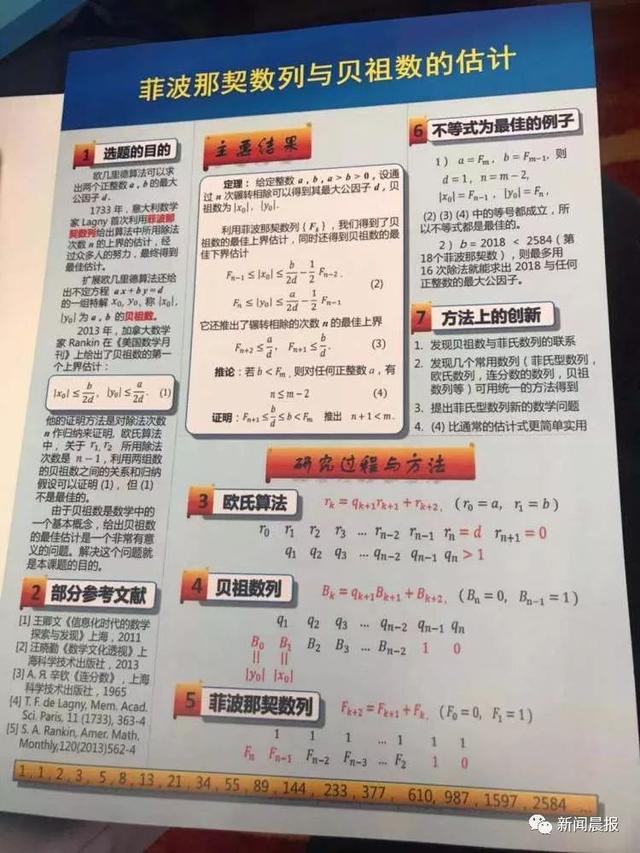 菲波那契数列与贝祖数的估计
1 选题的目的
欧几里德算法可以求
出两个正整数 a, b 的最大
公因子 d．
1733 年，意大利数学
家 Lagny 首次利用菲波那
契数列给出算法中所用除法
次数 n 的上界的估计，经
过众多人的努力，最终得到
最佳估计。
扩展欧几里德算法还给
出不定方程 ax + by = d
的一组特解 x₀, y₀, 称 |x₀|,
|y₀| 为 a, b 的贝祖数。
2013 年，加拿大数学
家 Rankin 在《美国数学月
刊》上给出了贝祖数的第一
个上界估计：
|x₀| ≤ b/2d, |y₀| ≤ a/2d. (1)
他的证明方法是对除法次数
n 作归纳来证明, 欧氏算法
中，关于 r₁, r₂ 所用除法
次数是 n − 1, 利用两组数
的贝祖数之间的关系和归纳
假设可以证明 (1)，但 (1)
不是最佳的。
由于贝祖数是数学中的
一个基本概念，给出贝祖数
的最佳估计是一个非常有意
义的问题。解决这个问题就
是本课题的目的。
2 部分参考文献
[1] 王卿文《信息化时代的数学
探索与发现》上海，2011
[2] 汪晓勤《数学文化透视》上
海科学技术出版社，2013
[3] А. Я 辛钦《连分数》，上海
科学技术出版社，1965
[4] T. F. de Lagny, Mem. Acad.
Sci. Paris, 11 (1733), 363-4
[5] S. A. Rankin, Amer. Math.
Monthly,120(2013)562-4
主要结果
定理：给定整数 a, b, a > b > 0, 设通
过 n 次辗转相除可以得到其最大公因子 d, 贝
祖数为 |x₀|, |y₀|.
利用菲波那契数列 {Fₖ}，我们得到了贝
祖数的最佳上界估计，同时还得到贝祖数的最佳
下界估计
Fₙ₋₁ ≤ |x₀| ≤ b/2d − 1/2 Fₙ₋₂.
(2)
Fₙ ≤ |y₀| ≤ a/2d − 1/2 Fₙ₋₁
它还推出了辗转相除的次数 n 的最佳上界
Fₙ₊₂ ≤ a/d, Fₙ₊₁ ≤ b/d. (3)
推论：若 b < Fₘ, 则对任何正整数 a，有
n ≤ m − 2 (4)
证明：Fₙ₊₁ ≤ b/d ≤ b < Fₘ 推出 n + 1 < m.
6 不等式为最佳的例子
1）a = Fₘ, b = Fₘ₋₁, 则
d = 1, n = m − 2,
|x₀| = Fₙ₋₁, |y₀| = Fₙ,
(2) (3) (4) 中的等号都成立，所
以不等式都是最佳的。
2）b = 2018 < 2584（第
18个菲波那契数），则最多用
16 次除法就能求出 2018 与任何
正整数的最大公因子。
7 方法上的创新
1. 发现贝祖数与菲氏数列的联系
2. 发现几个常用数列（菲氏型数列，
欧氏数列，连分数的数列，贝祖
数列等）可用统一的方法得到
3. 提出菲氏型数列新的数学问题
4. (4) 比通常的估计式更简单实用
研究过程与方法
3 欧氏算法 rₖ = qₖ₊₁rₖ₊₁ + rₖ₊₂, (r₀ = a, r₁ = b)
r₀ r₁ r₂ r₃ … rₙ₋₂ rₙ₋₁ rₙ = d rₙ₊₁ = 0
q₁ q₂ q₃ … qₙ₋₂ qₙ₋₁ qₙ > 1
4 贝祖数列 Bₖ = qₖ₊₁Bₖ₊₁ + Bₖ₊₂, (Bₙ = 0, Bₙ₋₁ = 1)
q₁ q₂ q₃ … qₙ₋₂ qₙ₋₁ qₙ
B₀ B₁ B₂ B₃ … Bₙ₋₂ 1 0
|| ||
|y₀| |x₀|
5 菲波那契数列 Fₖ₊₂ = Fₖ₊₁ + Fₖ, (F₀ = 0, F₁ = 1)
1 1 1 … 1 1 1
Fₙ Fₙ₋₁ Fₙ₋₂ Fₙ₋₃ … F₂ 1 0
1 , 1 , 2 , 3 , 5 , 8 , 13 , 21 , 34 , 55 , 89 , 144 , 233 , 377 , 610, 987 , 1597 , 2584 …
新闻晨报